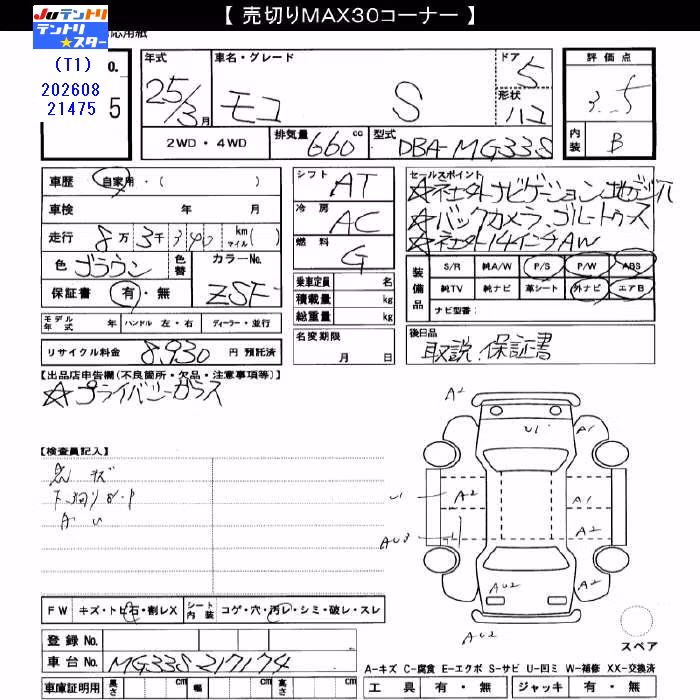 【 売切りMAX30コーナー 】
JUテントリ
テントリ★スター
応用紙
(T1)
202608
21475
o.
5
年式
25/3月
車名・グレード
モコ S
ドア
5
形状
ハコ
評価点
3.5
内装
B
2WD・4WD
排気量
660 cc
型式
DBA-MG33S
車歴
自家用・( )
車検 年 月
走行 8万3千340 km マイル( )
色 ブラウン
色替
カラーNo.
ZSF
保証書 有・無
モデル年式 年
ハンドル 左・右
ディーラー・並行
リサイクル料金 8,930 円 預託済
シフト
AT
冷房
AC
燃料
G
乗車定員 名
積載量 kg
総重量 kg
名変期限
月 日
セールスポイント
☆社外ナビゲーション地デジTV
☆バックカメラ.ブルートゥース
☆社外14インチAW
装備品
S/R 純A/W P/S P/W ABS
純TV 純ナビ 革シート 外ナビ エアB
ナビ型番:
後日品
取説.保証書
【出品店申告欄(不良箇所・欠品・注意事項等)】
☆プライバシーガラス
【検査員記入】
A U
FW キズ・トビ石・割レX
シート内装 コゲ・穴・汚レ・シミ・破レ・スレ
登録 No.
車台 No. MG33S 217174
車庫証明用 長さ cm 幅 cm 高さ cm
A2
U1
A1
A2
A1
A2
AU2
AU2
AU2
スペア
A-キズ C-腐食 E-エクボ S-サビ U-凹ミ W-補修 XX-交換済
工具 有・無 ジャッキ 有・無